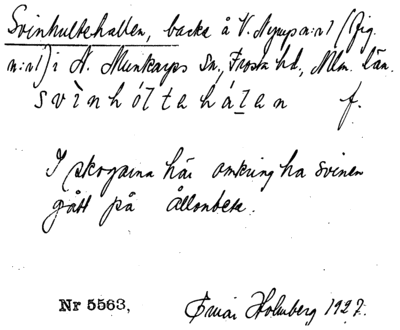 Svinhultehallen, backa å V. Nyrup n:o 1 (Pig.
n:o 1) i N. Munkarps sn, Frosta hd, Mlm. län.
svinholtehalen f.
I skogarna här omkring ha svinen
gått på ållonbete.
Nr 5563, Holmberg 1927.